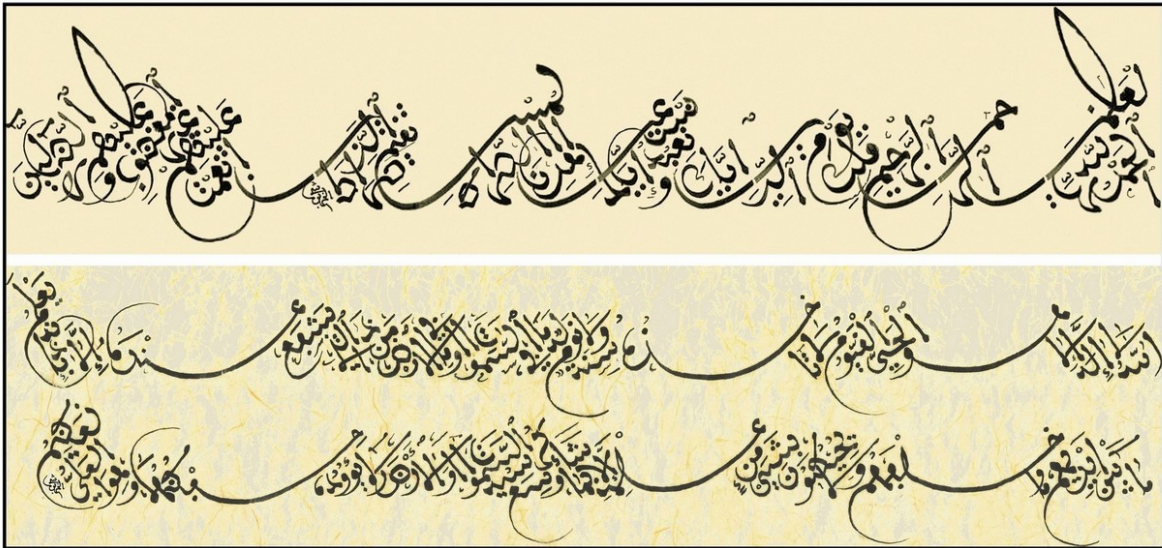 الحمد لله رب العلمين الرحمن الرحيم ملك يوم الدين اياك نعبد واياك نستعين اهدنا الصراط المستقيم صراط الذين انعمت عليهم غير المغضوب عليهم ولا الضالين
الله لا اله الا هو الحي القيوم لا تاخذه سنة ولا نوم له ما في السموت وما في الارض من ذا الذي يشفع عنده الا باذنه يعلم
ما بين ايديهم وما خلفهم ولا يحيطون بشيء من علمه الا بما شاء وسع كرسيه السموت والارض ولا يؤده حفظهما وهو العلي العظيم